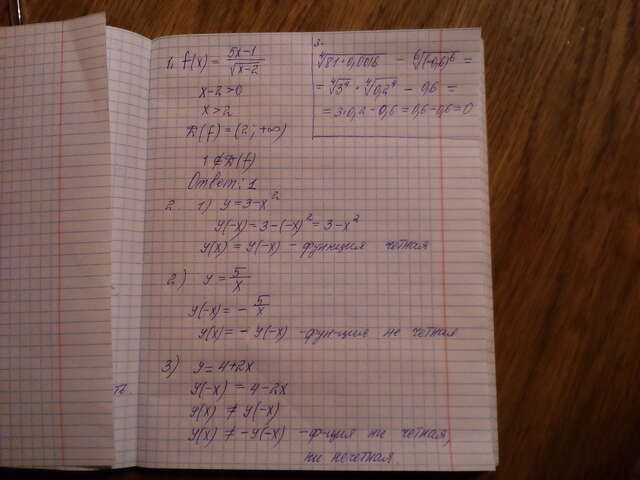 1. f(x) = (5x-1)/√(x-2)
x-2>0
x>2
D(f) = (2; +∞)
1 ∉ D(f)
Ответ: 1
2. 1) y = 3-x²
y(-x) = 3-(-x)² = 3-x²
y(x) = y(-x) - функция четная
2) y = 5/x
y(-x) = - 5/x
y(x) = - y(-x) - фун-ция не четная
3) y = 4+2x
y(-x) = 4-2x
y(x) ≠ y(-x)
y(x) ≠ -y(-x) - ф-ция ни четная,
ни нечетная.
3.
⁴√(81·0,0016) - ⁶√((-0,6)⁶) =
= ⁴√3⁴ · ⁴√0,2⁴ - 0,6 =
= 3·0,2 - 0,6 = 0,6-0,6 = 0